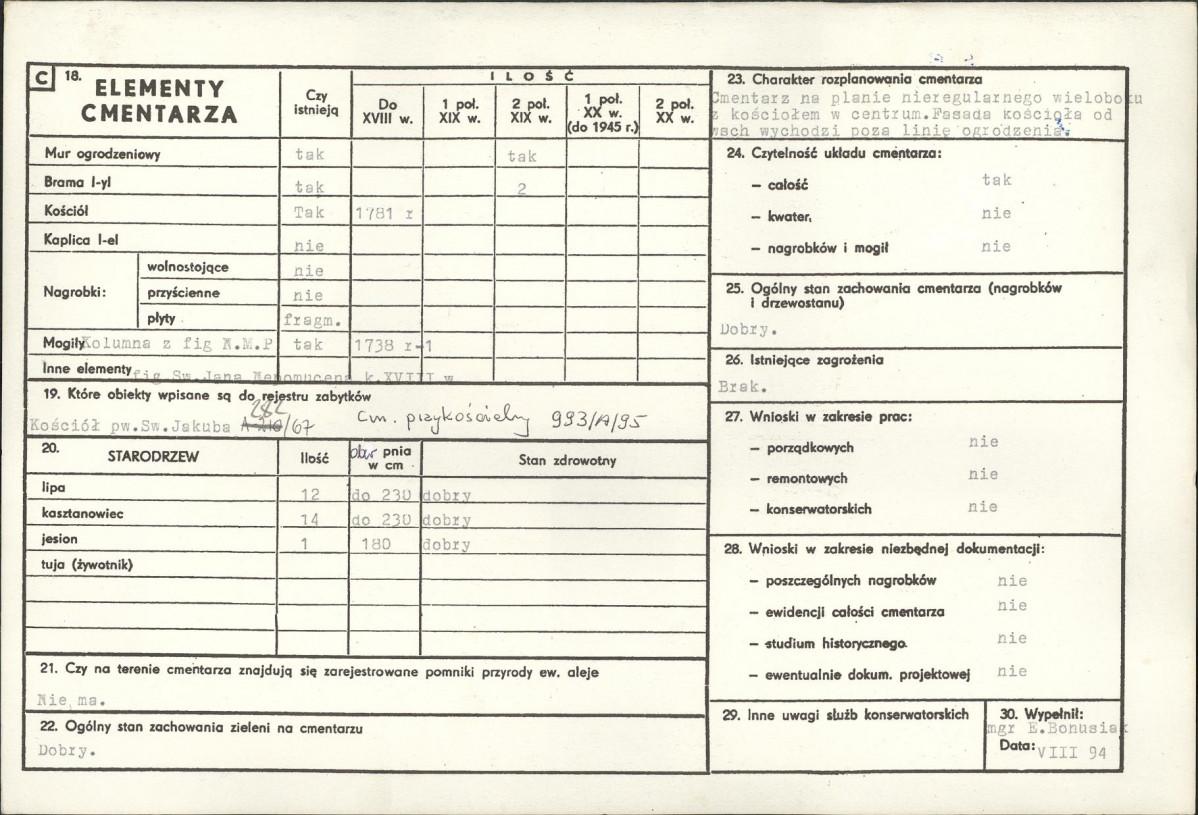 C 18. ELEMENTY CMENTARZA
Czy istnieją
ILOŚĆ
Do XVIII w.
1 poł. XIX w.
2 poł. XIX w.
1 poł. XX w. (do 1945 r.)
2 poł. XX w.
Mur ogrodzeniowy tak tak
Brama I-yl tak 2
Kościół Tak 1781 r
Kaplica I-el nie
Nagrobki: wolnostojące nie
przyścienne nie
płyty fragm.
Mogiły Kolumna z fig N.M.P tak 1738 r-1
Inne elementy fig Sw.Jana Nepomucena k.XVIII w
19. Które obiekty wpisane są do rejestru zabytków
282
Kościół pw.Sw.Jakuba A-210/67 Cm. przykościelny 993/A/95
20. STARODRZEW Ilość obw pnia w cm Stan zdrowotny
lipa 12 do 230 dobry
kasztanowiec 14 do 230 dobry
jesion 1 180 dobry
tuja (żywotnik)
21. Czy na terenie cmentarza znajdują się zarejestrowane pomniki przyrody ew. aleje
Nie ma.
22. Ogólny stan zachowania zieleni na cmentarzu
Dobry.
23. Charakter rozplanowania cmentarza
Cmentarz na planie nieregularnego wieloboku
z kościołem w centrum.Fasada kościoła od
wach wychodzi poza linię ogrodzenia.
24. Czytelność układu cmentarza:
– całość tak
– kwater, nie
– nagrobków i mogił nie
25. Ogólny stan zachowania cmentarza (nagrobków
i drzewostanu)
Dobry.
26. Istniejące zagrożenia
Brak.
27. Wnioski w zakresie prac:
– porządkowych nie
– remontowych nie
– konserwatorskich nie
28. Wnioski w zakresie niezbędnej dokumentacji:
– poszczególnych nagrobków nie
– ewidencji całości cmentarza nie
– studium historycznego. nie
– ewentualnie dokum. projektowej nie
29. Inne uwagi służb konserwatorskich
30. Wypełnił:
mgr E.Bonusiak
Data: VIII 94